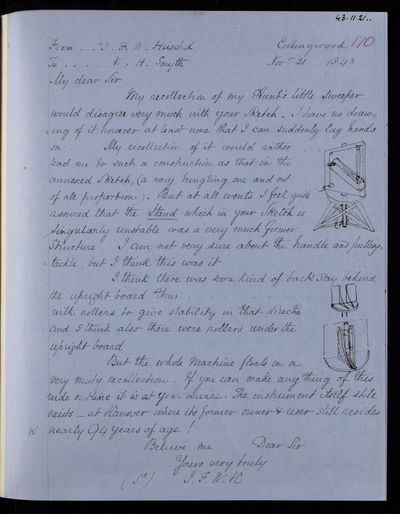 43.11.21..
From . . . J. F. W. Herschel
Collingwood 170
To . . . . . W. H. Smyth
Novr 21 1843
My dear Sir
My recollection of my Aunt's little Sweeper
would disagree very much with your Sketch. I have no draw-
ing of it however at least none that I can suddenly lay hands
on. My recollection of it would rather
lead me to such a construction as that in the
annexed Sketch, (a very bungling one and out
of all proportion). But at all events I feel quite
assured that the Stand which in your Sketch is
singularly unstable was a very much firmer
Structure I am not very sure about the handle and pulley-
tackle but I think this was it
I think there was some kind of back stay behind
the upright board thus . . . . . .
with rollers to give stability in that directn
and I think also there were rollers under the
upright board
But the whole Machine floats in a
very misty recollection. If you can make any thing of this
rude outline it is at your service. The instrument itself still
exists _ at Hanover where its former owner & user still resides
nearly 94 years of age !
Believe me Dear Sir
Yours very truly
J. F. W. H